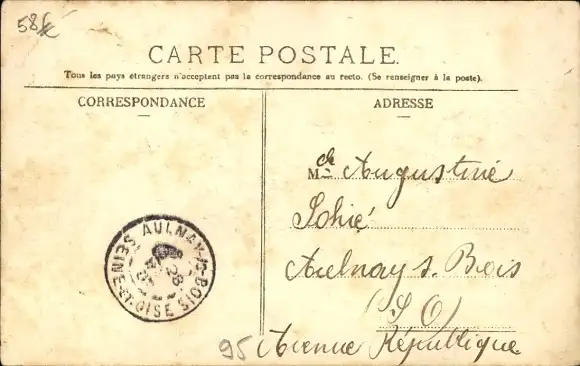 58
CARTE POSTALE.
Tous les pays étrangers n'acceptent pas la correspondance au recto. (Se renseigner à la poste).
CORRESPONDANCE
ADRESSE
Mlle Augustine
Aulnay s. Bois
(S O)
Avenue République
95
AULNAY-S-BOIS
SEINE-ET-OISE
28